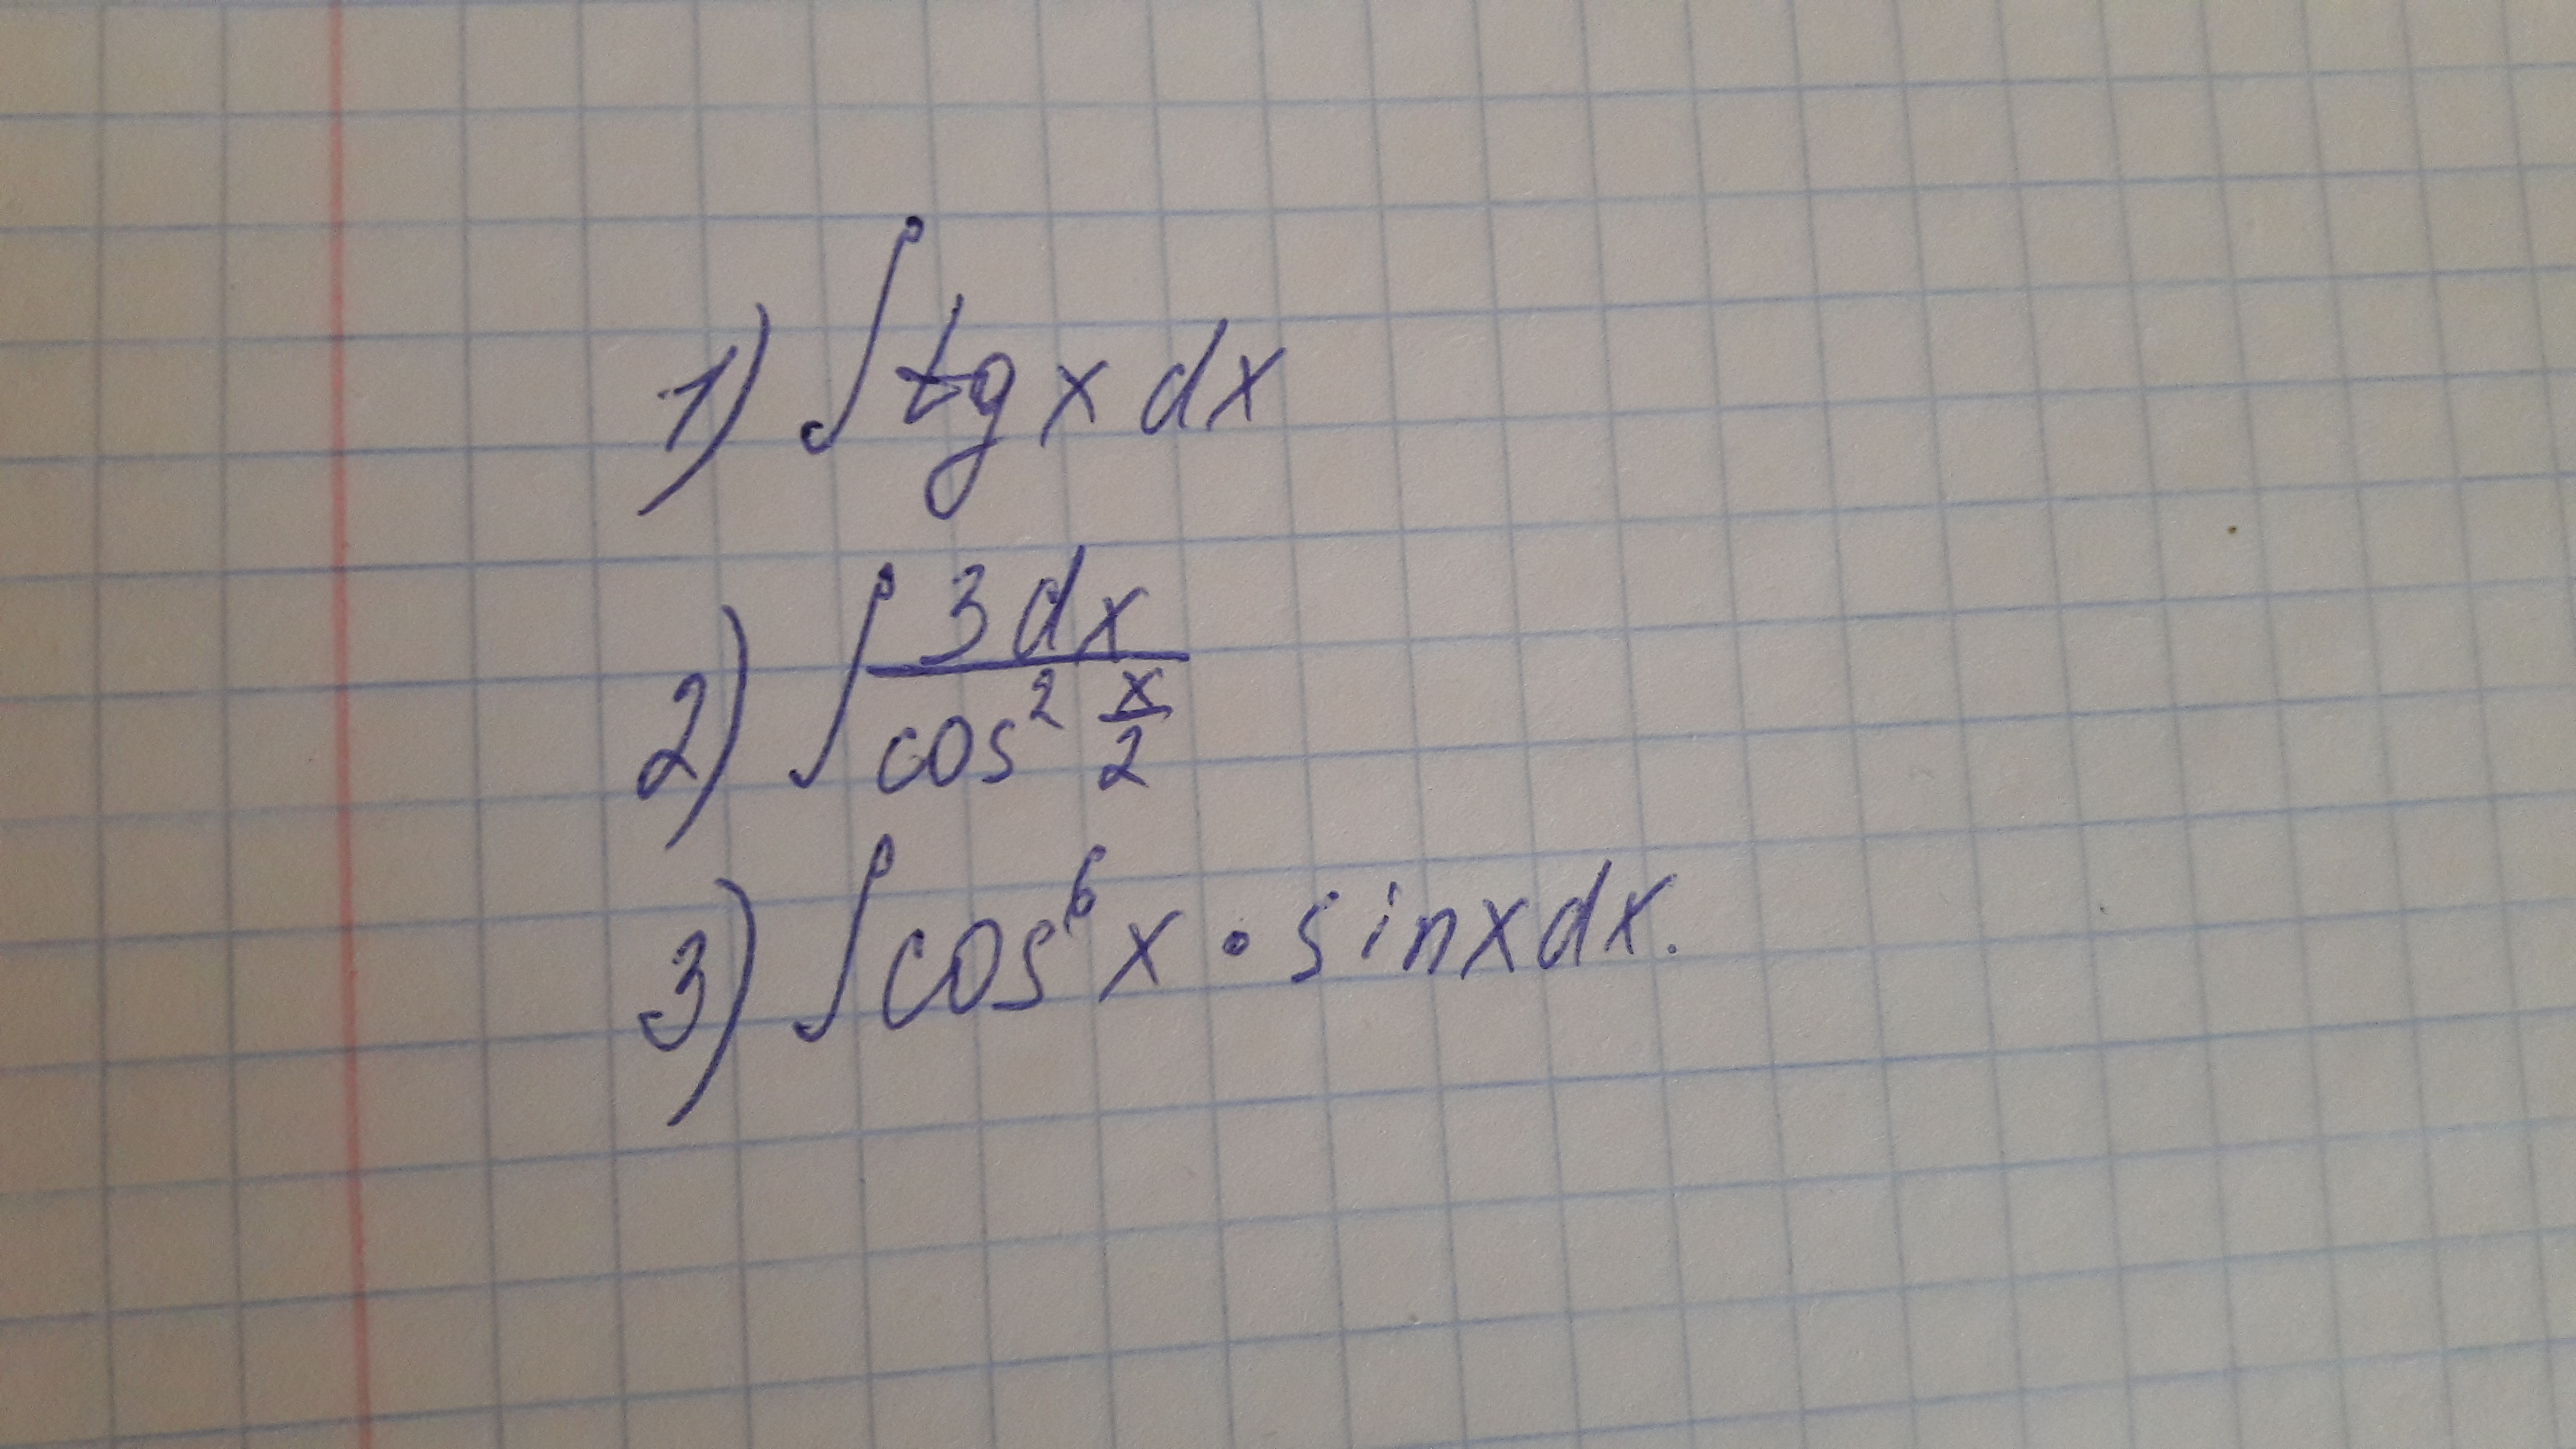 1) ∫ tg x dx
2) ∫ 3 dx / cos² x/2
3) ∫ cos⁶ x • sin x dx.